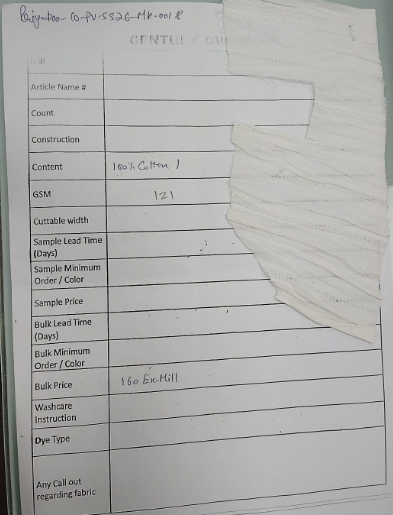 CO-PV-SS26-MK-0018
CENTURY
Article Name #
Count
Construction
Content 100% Cotton
GSM 121
Cuttable width
Sample Lead Time
(Days)
Sample Minimum
Order / Color
Sample Price
Bulk Lead Time
(Days)
Bulk Minimum
Order / Color
Bulk Price 160 Ex-Mill
Washcare
Instruction
Dye Type
Any Call out
regarding fabric